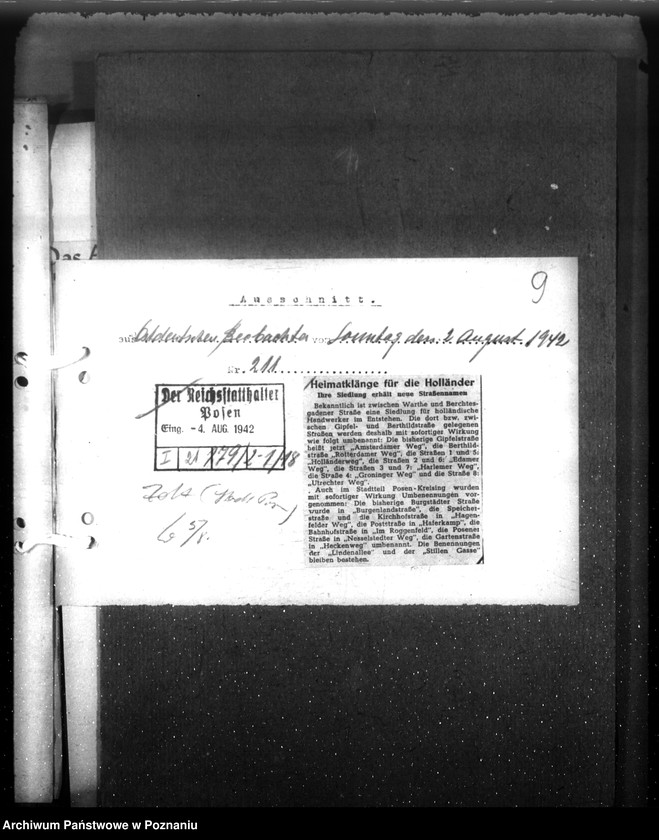 Das A
9
Ausschnitt.
aus Ostdeutscher Beobachter vom Sonntag, den 2. August 1942
Nr. 211
Der Reichsstatthalter
Posen
Eing. -4. AUG. 1942
I 21 179/2-1/18
6 5/
Heimatklänge für die Holländer
Ihre Siedlung erhält neue Straßennamen
Bekanntlich ist zwischen Warthe und Berchtes-
gadener Straße eine Siedlung für holländische
Handwerker im Entstehen. Die dort bzw. zwi-
schen Gipfel- und Berthildstraße gelegenen
Straßen werden deshalb mit sofortiger Wirkung
wie folgt umbenannt: Die bisherige Gipfelstraße
heißt jetzt „Amsterdamer Weg", die Berthild-
straße „Rotterdamer Weg", die Straßen 1 und 5:
„Holländerweg", die Straßen 2 und 6: „Edamer
Weg", die Straßen 3 und 7: „Harlemer Weg",
die Straße 4: „Groninger Weg" und die Straße 8:
„Utrechter Weg".
Auch im Stadtteil Posen-Kreising wurden
mit sofortiger Wirkung Umbenennungen vor-
genommen: Die bisherige Burgstädter Straße
wurde in „Burgenlandstraße", die Speicher-
straße und die Kirchhofstraße in „Hagen-
felder Weg", die Poststraße in „Haferkamp", die
Bahnhofstraße in „Im Roggenfeld", die Posener
Straße in „Nesselstedter Weg", die Gartenstraße
in „Heckenweg" umbenannt. Die Benennungen
der „Lindenallee" und der „Stillen Gasse"
bleiben bestehen.
Archiwum Państwowe w Poznaniu